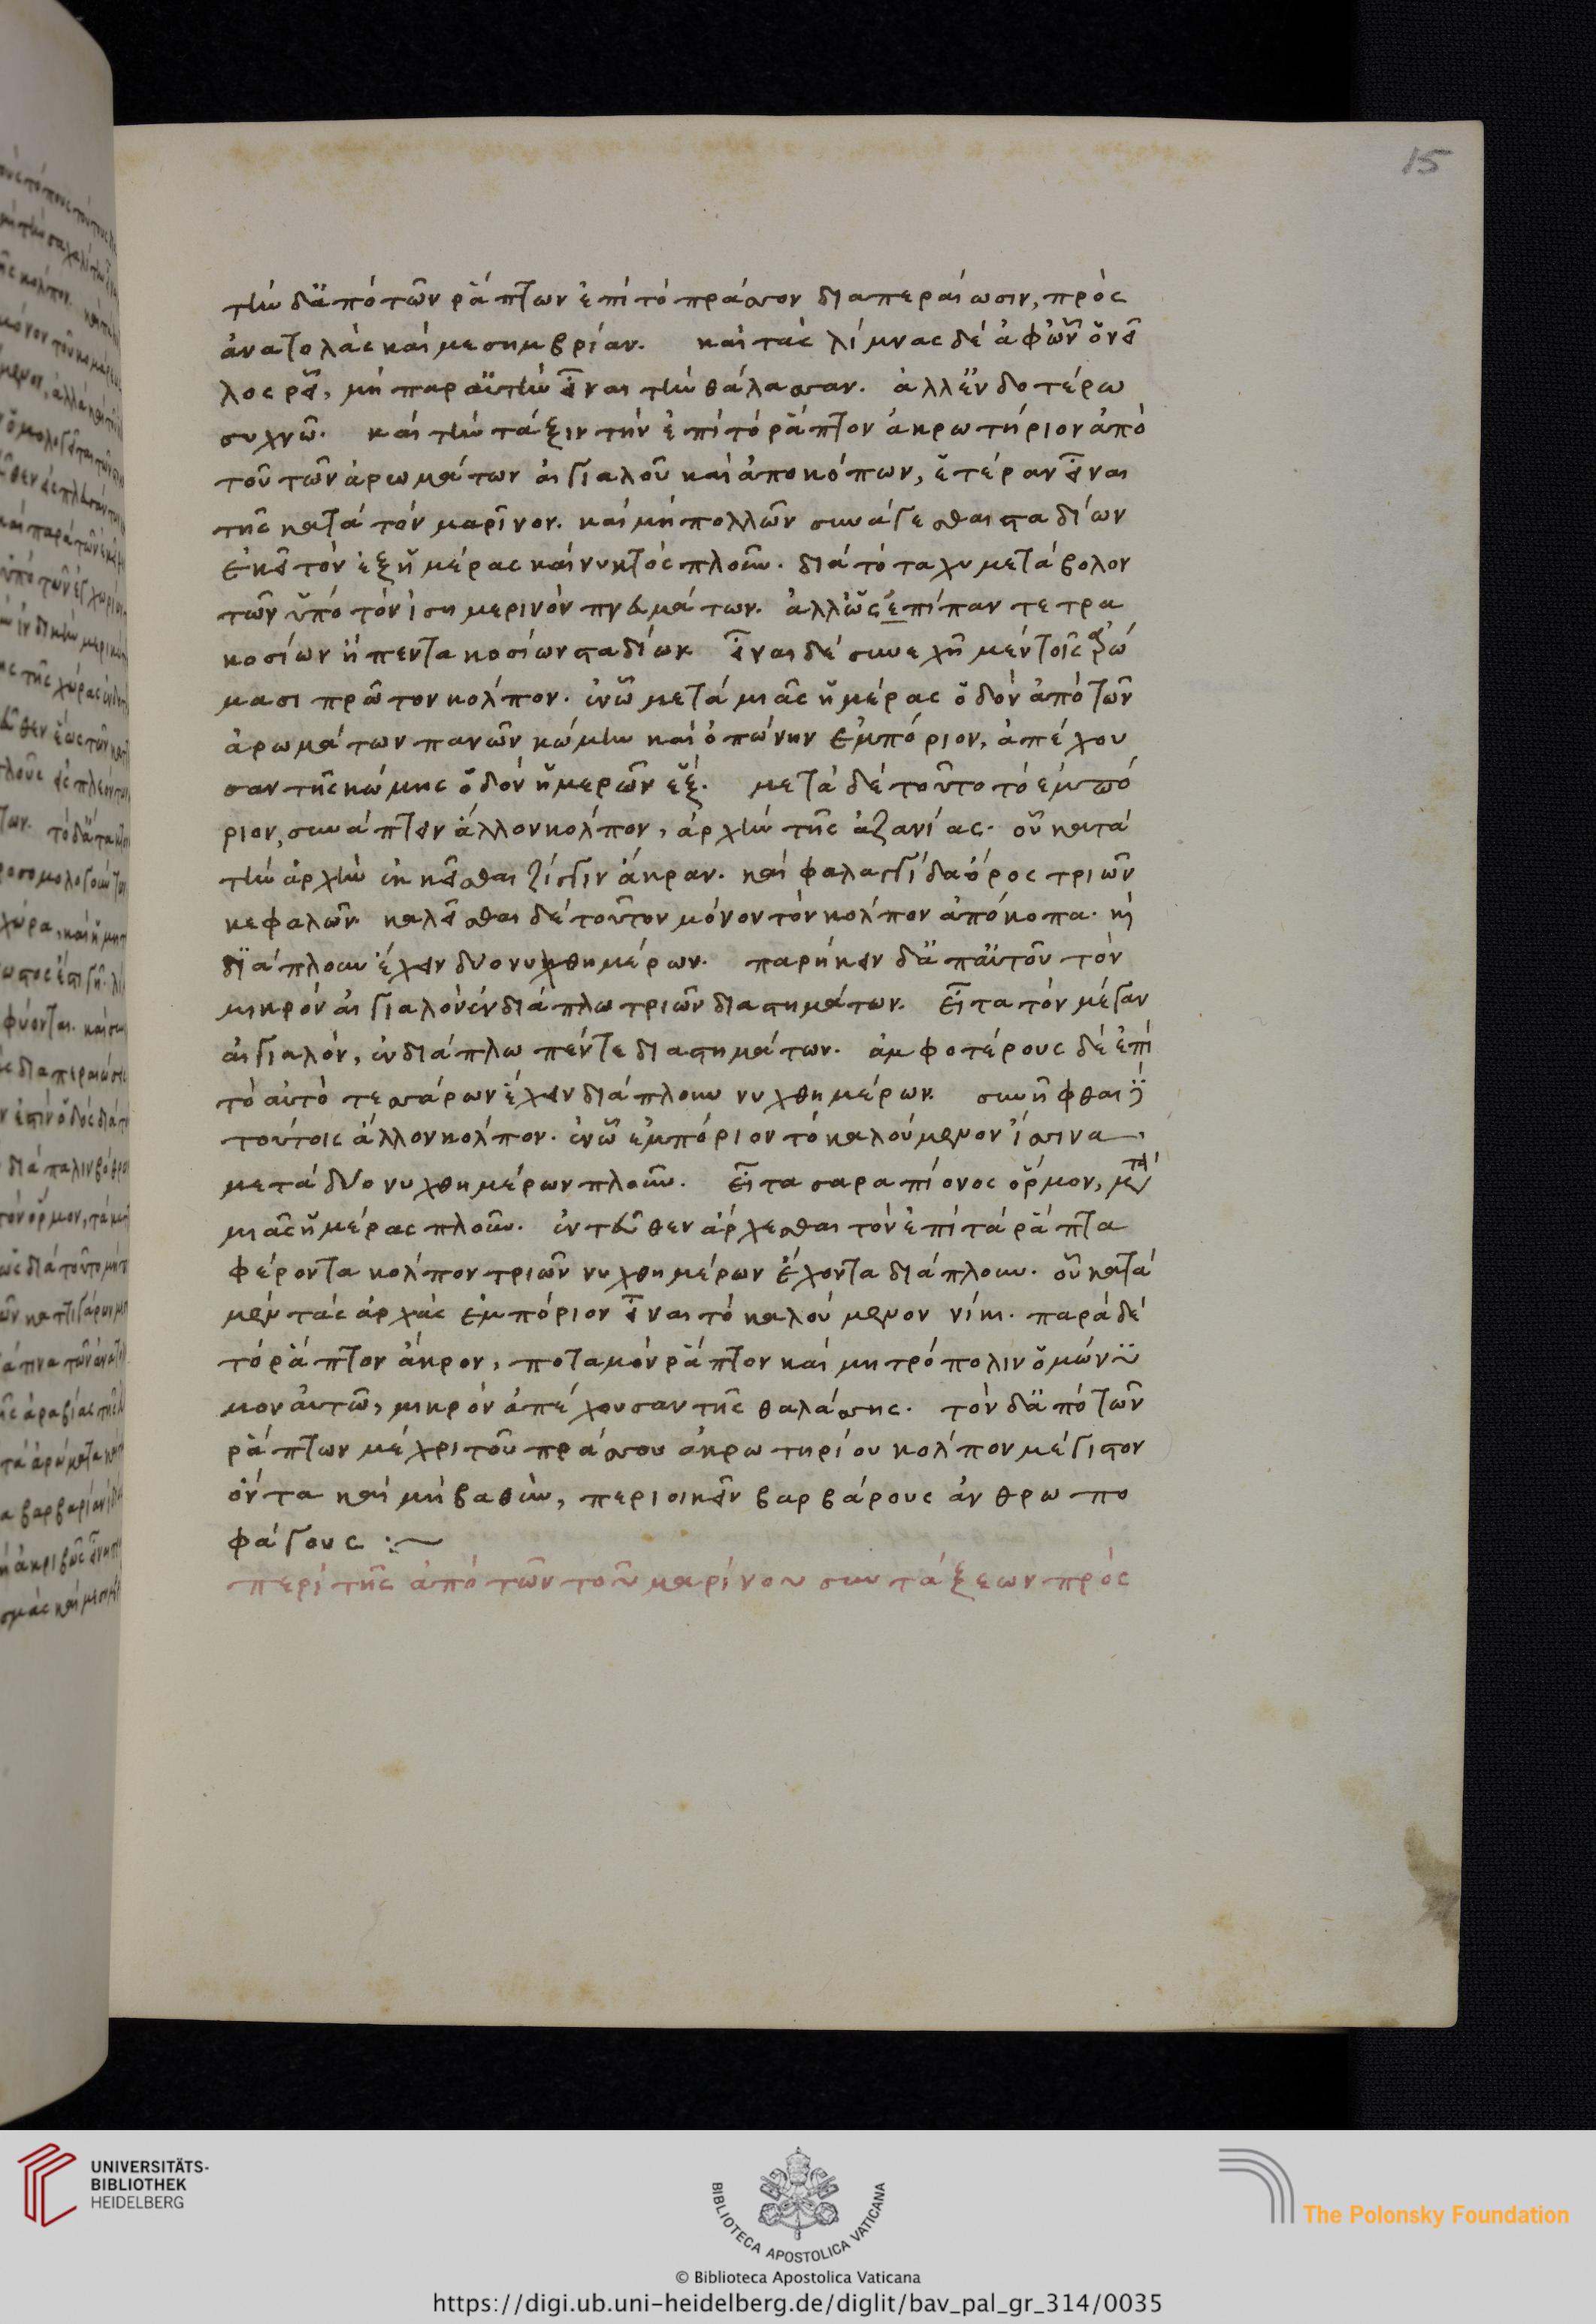 15
τὴν δ' ἀπὸ τῶν ῥάπτων ἐπὶ τὸ πράσσον διαπεραίωσιν, πρὸς
ἀνατολὰς καὶ μεσημβρίαν. καὶ τὰς λίμνας δὲ ἀφ' ὧν ὁ νεῖ
λος ῥεῖ, μὴ παρ' αὐτὴν εἶναι τὴν θάλασσαν. ἀλλ' ἐνδοτέρω
συχνῶ. καὶ τὴν τάξιν τὴν ἐπὶ τὸ ῥάπτον ἀκρωτήριον ἀπὸ
τοῦ τῶν ἀρωμάτων αἰγιαλοῦ καὶ ἀποκόπων, ἑτέραν εἶναι
τῆς κατὰ τὸν μαρῖνον. καὶ μὴ πολλῶν συνάγεσθαι σταδίων
ἐκεῖ τὸν ἐξ ἡμέρας καὶ νυκτὸς πλοῦν. διὰ τὸ ταχυμετάβολον
τῶν ὑπὸ τὸν ἰσημερινὸν πνευμάτων. ἀλλ' ὡς ἐπίπαν τετρα
κοσίων ἢ πεντακοσίων σταδίων. εἶναι δὲ συνεχῆ μὲν τοῖς ἀρώ
μασι πρῶτον κόλπον. ἐν ᾧ μετὰ μιᾶς ἡμέρας ὁδὸν ἀπὸ τῶν
ἀρωμάτων πανῶν κώμην καὶ ὀπώνην ἐμπόριον, ἀπέχου
σαν τῆς κώμης ὁδὸν ἡμερῶν ἕξ. μετὰ δὲ τοῦτο τὸ ἐμπό
ριον, συνάπτειν ἄλλον κόλπον, ἀρχὴν τῆς ἀζανίας. οὗ κατὰ
τὴν ἀρχὴν ἐκκεῖσθαι ζίγγιν ἄκραν. καὶ φαλαγγίδα ὄρος τριῶν
κεφαλῶν. καλεῖσθαι δὲ τοῦτον μόνον τὸν κόλπον ἀπόκοπα. καὶ
διάπλουν ἔχειν δύο νυχθημέρων. παρήκειν δ' ἀπ' αὐτοῦ τὸν
μικρὸν αἰγιαλὸν ἐν διάπλω τριῶν διαστημάτων. εἶτα τὸν μέγαν
αἰγιαλὸν, ἐν διάπλω πέντε διαστημάτων. ἀμφοτέρους δὲ ἐπὶ
τὸ αὐτὸ τεσσάρων ἔχειν διάπλουν νυχθημέρων. συνῆφθαι δὲ
τούτοις ἄλλον κόλπον. ἐν ᾧ ἐμπόριον τὸ καλούμενον ἴσσινα
μετὰ δύο νυχθημέρων πλοῦν. εἶτα σαραπίονος ὅρμον, μετὰ
μιᾶς ἡμέρας πλοῦν. ἐντεῦθεν ἄρχεσθαι τὸν ἐπὶ τὰ ῥάπτα
φέροντα κόλπον τριῶν νυχθημέρων ἔχοντα διάπλουν. οὗ κατὰ
μὲν τὰς ἀρχὰς ἐμπόριον εἶναι τὸ καλούμενον νίκι. παρὰ δὲ
τὸ ῥάπτον ἄκρον, ποταμὸν ῥάπτον καὶ μητρόπολιν ὁμώνυ
μον αὐτῶ, μικρὸν ἀπέχουσαν τῆς θαλάσσης. τὸν δ' ἀπὸ τῶν
ῥάπτων μέχρι τοῦ πράσσου ἀκρωτηρίου κόλπον μέγιστον
ὄντα καὶ μὴ βαθὺν, περιοικεῖν βαρβάρους ἀνθρωπο
φάγους :~
περὶ τῆς ἀπὸ τῶν τοῦ μαρίνου συντάξεων πρὸς
UNIVERSITÄTS-
BIBLIOTHEK
HEIDELBERG
BIBLIOTECA APOSTOLICA VATICANA
The Polonsky Foundation
© Biblioteca Apostolica Vaticana
https://digi.ub.uni-heidelberg.de/diglit/bav_pal_gr_314/0035